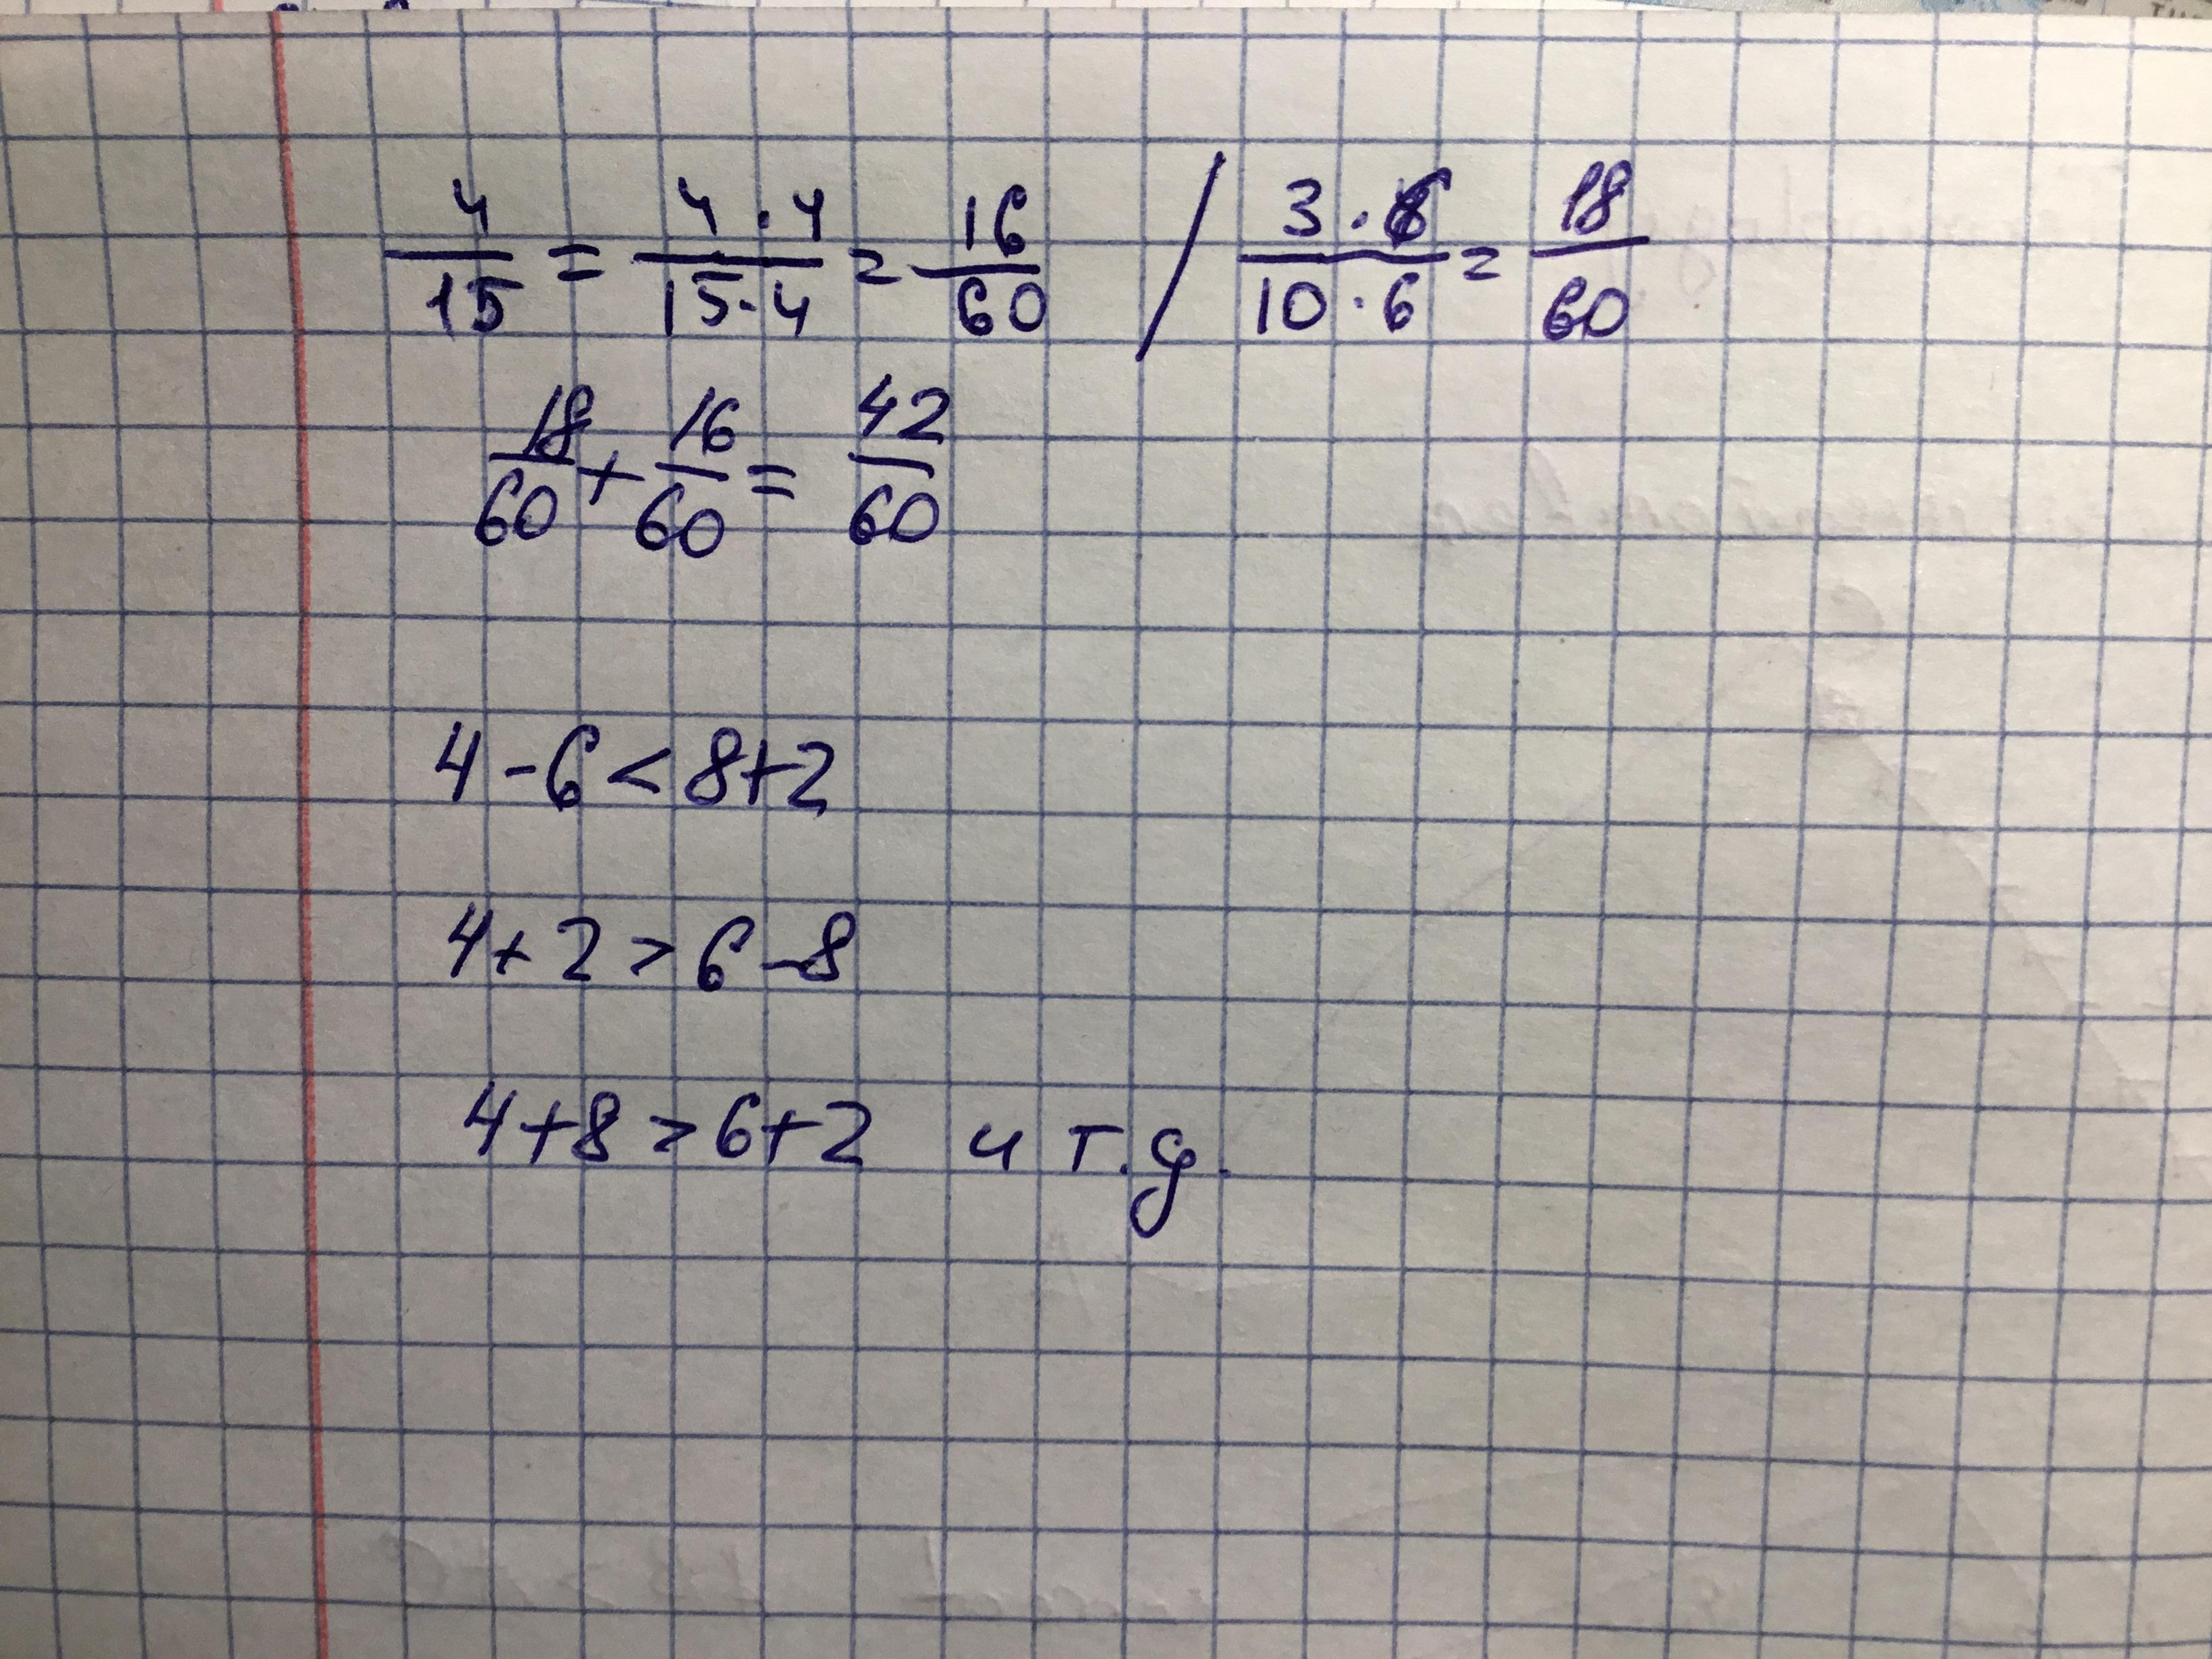 4/15 = 4·4/15·4 = 16/60 / 3·6/10·6 = 18/60
18/60 + 16/60 = 42/60
4-6<8+2
4+2>6-8
4+8>6+2 и т.д.